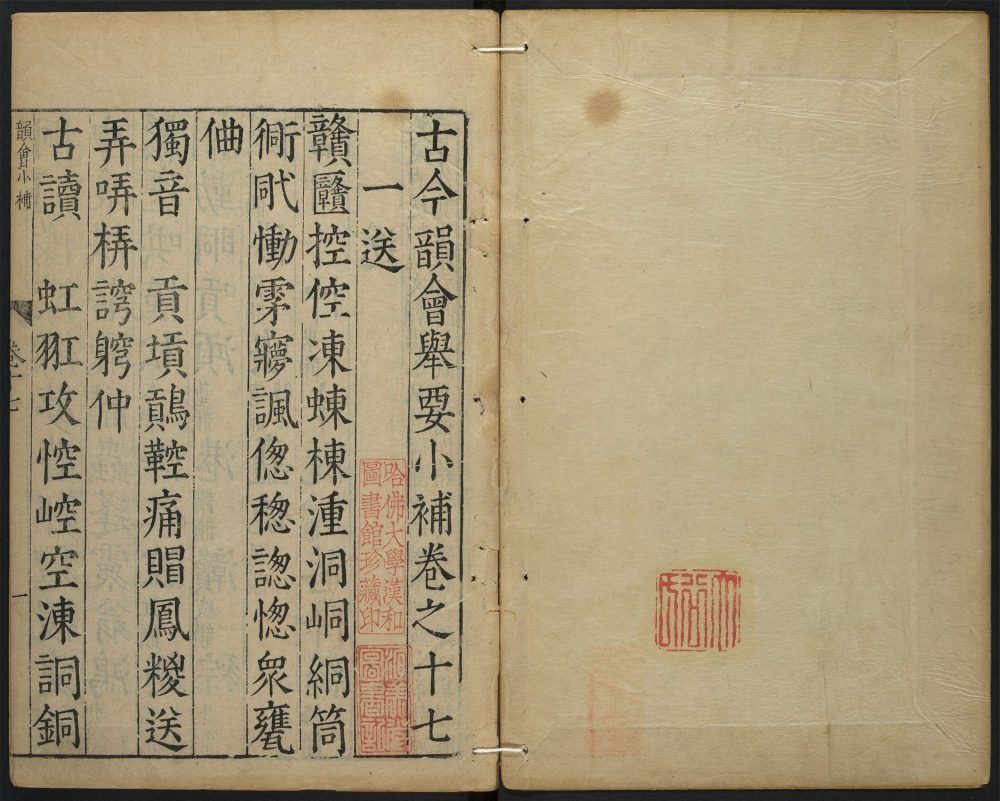 古今韻會舉要小補卷之十七
一送
贛𥫔控倥凍蝀棟湩洞峒絧筒
衕戙慟雺寱諷傯稯謥愡衆罋
𠊧
獨音　貢塡鸗鞚痛賵鳳糉送
弄哢梇謗躬仲
古讀　虹羾攻悾崆空涷詷銅
韻會小補
卷十七
一
哈佛大學漢和
圖書館珍藏印